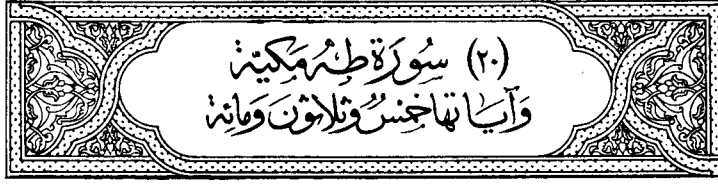 (٢٠) سُورَة طٰهٰ مَكِيّة
وَآيَاتها خمسٌ وَثلاثونَ وَمائة